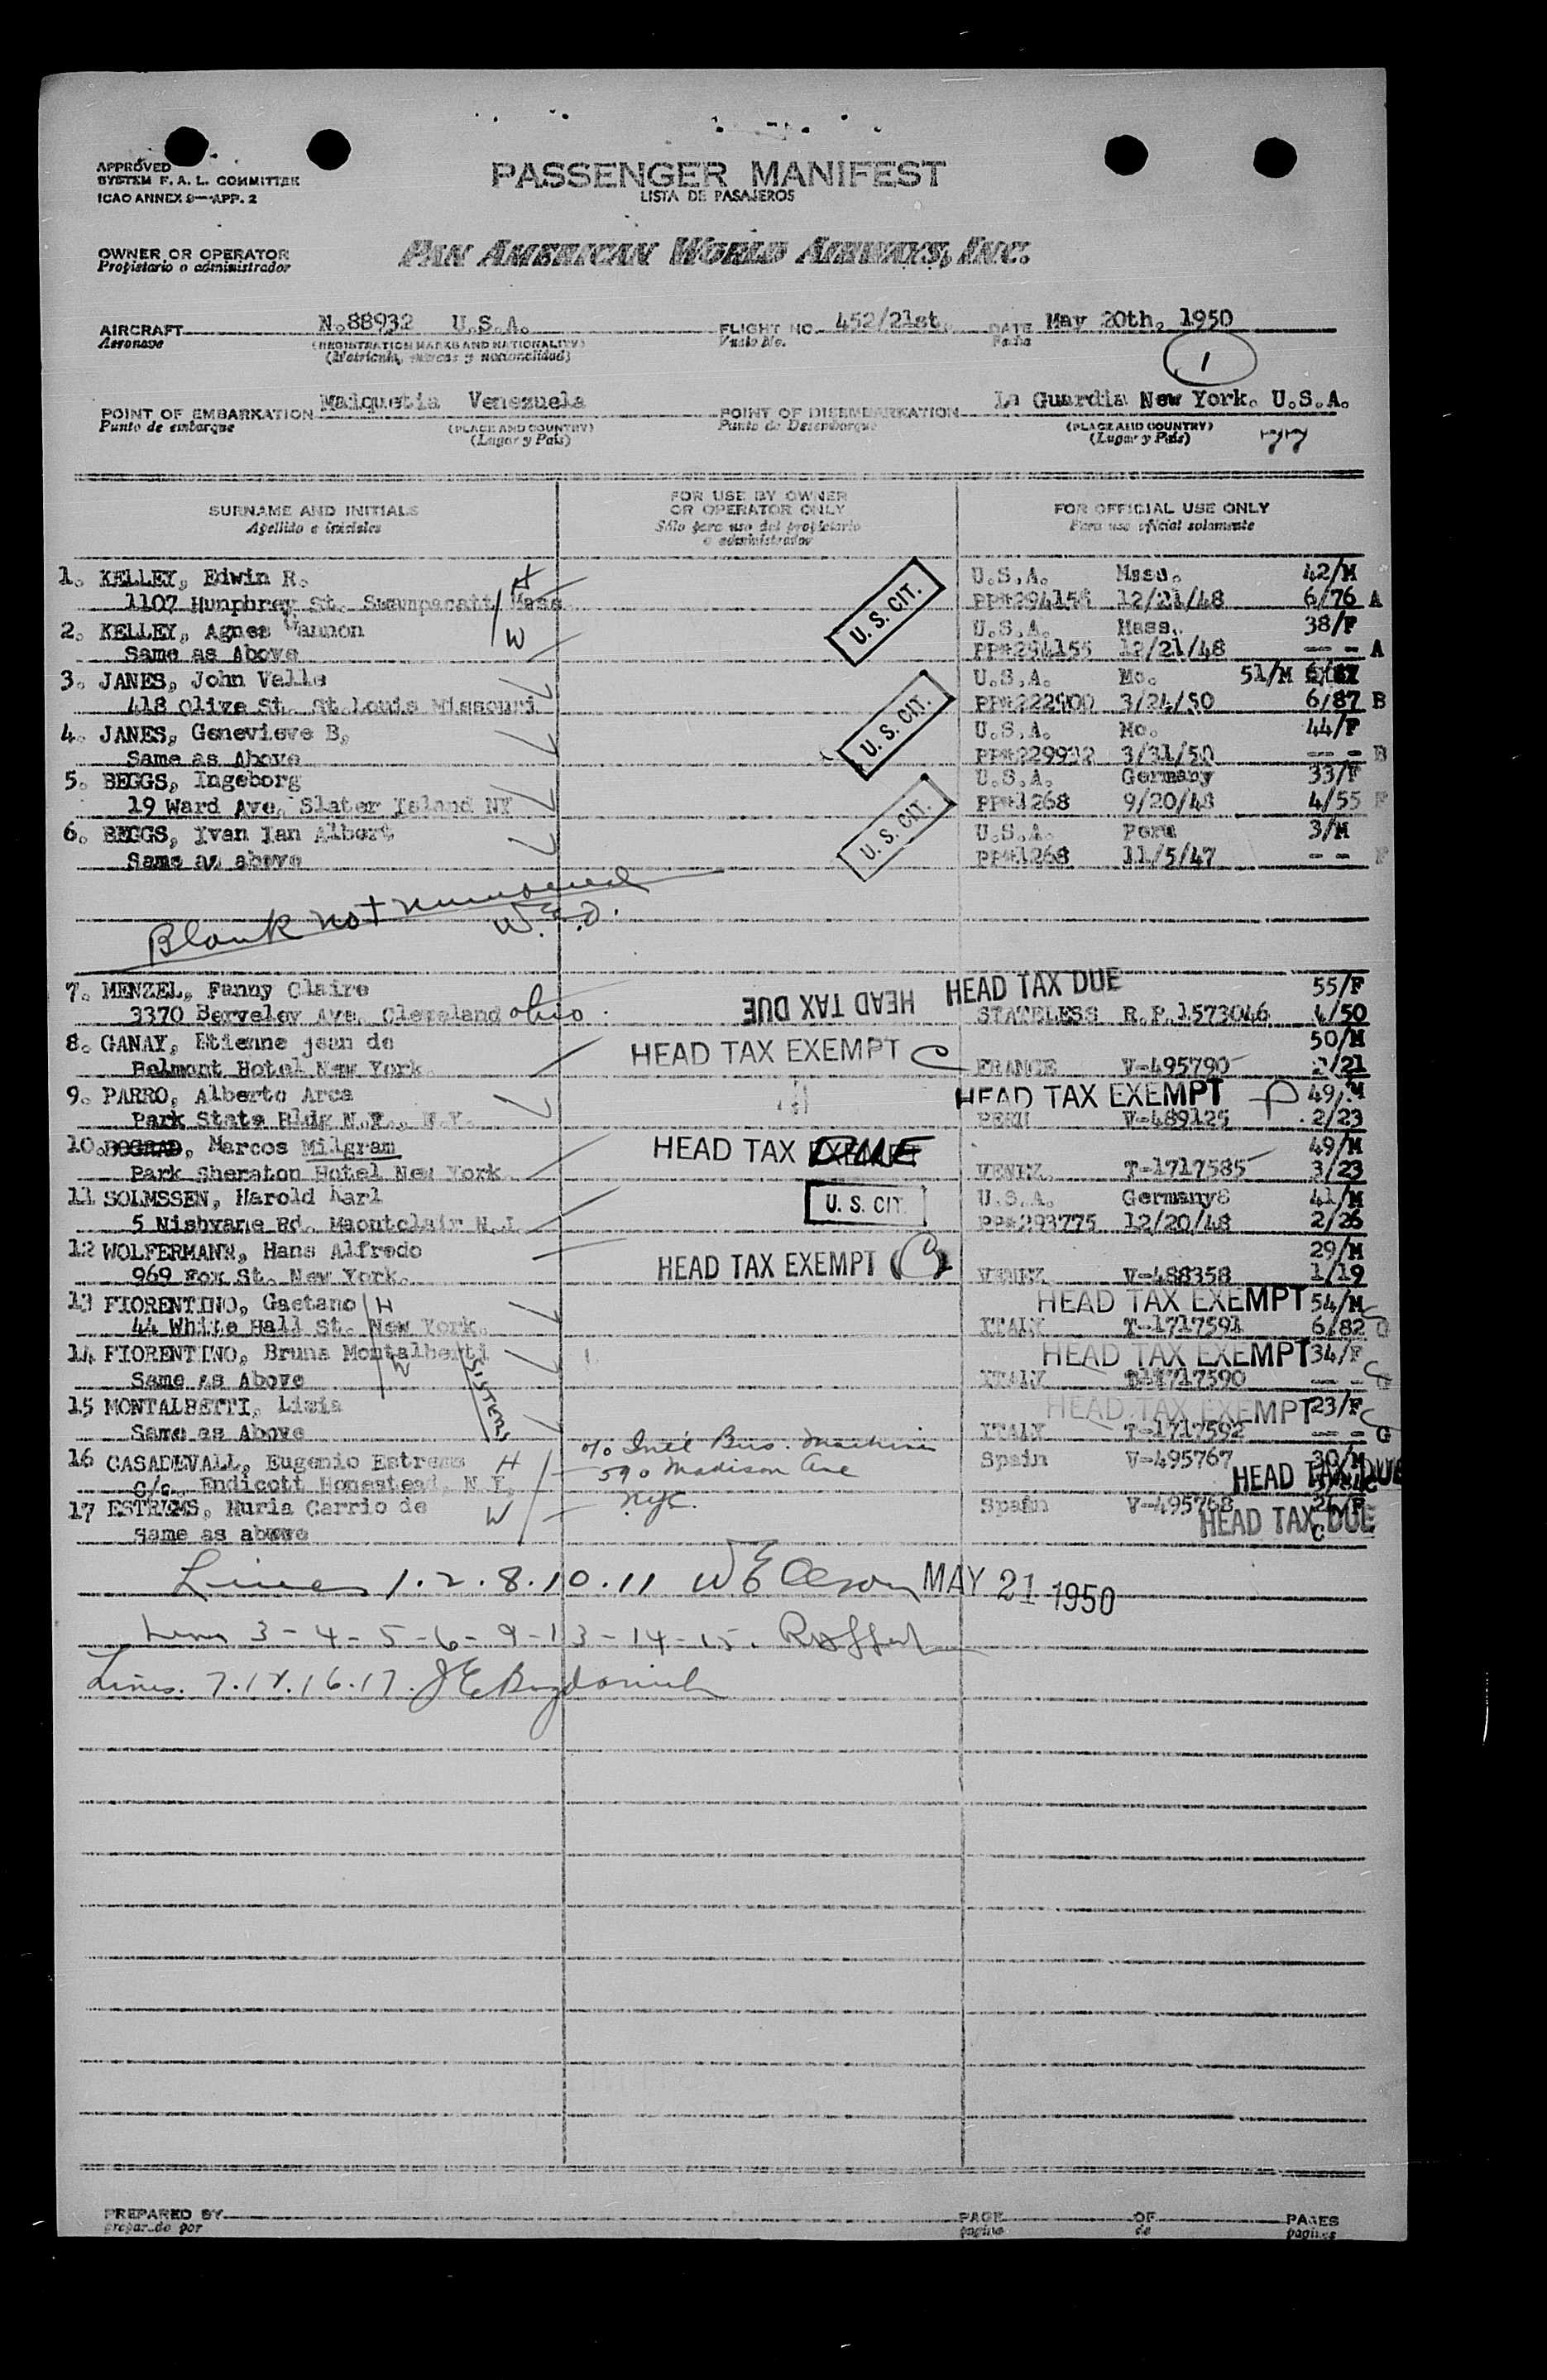 APPROVED
SYSTEM F. A. L. COMMITTEE
ICAO ANNEX 9—APP. 2
PASSENGER MANIFEST
LISTA DE PASAJEROS
OWNER OR OPERATOR
Propietario o administrador
PAN AMERICAN WORLD AIRWAYS, INC.
AIRCRAFT N.88932 U.S.A. FLIGHT NO. 452/21st. DATE May 20th, 1950
Aeronave (REGISTRATION MARKS AND NATIONALITY) Vuelo No. Fecha
(Matricula, marcas y nacionalidad)
1
POINT OF EMBARKATION Maiquetia Venezuela POINT OF DISEMBARKATION La Guardia New York. U.S.A.
Punto de embarque (PLACE AND COUNTRY) Punto de Desembarque (PLACE AND COUNTRY)
(Lugar y País) (Lugar y País) 77
SURNAME AND INITIALS FOR USE BY OWNER OR OPERATOR ONLY FOR OFFICIAL USE ONLY
Apellido e iniciales Sólo para uso del propietario o administrador Para uso oficial solamente
1. KELLEY, Edwin R. H U.S.A. Mass. 42/M
1107 Humphrey St. Mass U. S. CIT. PP# 12/21/48 6/76 A
2. KELLEY, Agnes Vannon W U.S.A. Mass. 38/F
Same as Above PP#294155 12/21/48 -- - A
3. JANES, John Valle U.S.A. Mo. 51/M
418 Olive St. St Louis Missouri U. S. CIT. PP#222900 3/24/50 6/87 B
4. JANES, Genevieve B, U.S.A. Mo. 44/F
Same as Above PP#229932 3/31/50 -- - B
5. BEGGS, Ingeborg U.S.A. Germany 33/F
19 Ward Ave. Slater Island NY U. S. CIT. PP#1268 9/20/48 4/55 F
6. BEGGS, Ivan Ian Albert U.S.A. Peru 3/M
Same as above PP#1268 11/5/47 - - F
Blank not numbered
W.E.O.
7. MENZEL, Fanny Claire HEAD TAX DUE HEAD TAX DUE 55/F
3370 Berveley Ave. Cleveland Ohio STATELESS R.P.1573046 4/50
8. GANAY, Etienne jean de HEAD TAX EXEMPT C 50/M
Belmont Hotel New York. FRANCE V-495790 2/21
9. PARRO, Alberto Arca HEAD TAX EXEMPT P 49/M
Park State Bldg N.Y., N.Y. PERU V-489125 2/23
10. BOGRAD, Marcos Milgram HEAD TAX EXEMPT DUE 49/M
Park Sheraton Hotel New York. VENEZ. T-1717585 3/23
11 SOLMSSEN, Harold Karl U. S. CIT. U.S.A. Germany8 41/M
5 Nishvane Rd. Maontclair N.J. PP#293775 12/20/48 2/26
12 WOLFERMANN, Hans Alfredo HEAD TAX EXEMPT C 29/M
969 Fox St. New York. VENEZ. V-488358 1/19
13 FIORENTINO, Gaetano H HEAD TAX EXEMPT 54/M
44 White Hall St. New York. ITALY T-1717591 6/82 G
14 FIORENTINO, Bruna Montalberti W HEAD TAX EXEMPT 34/F
Same As Above Sisters ITALY T-1717590 -- -
15 MONTALBETTI, Liwia HEAD TAX EXEMPT 23/F
Same as Above ITALY T-1717592 -- - G
16 CASADEVALL, Eugenio Estrems H c/o Int'l Bus. Machine Spain V-495767 30/M
c/o. Endicott Homestead, N.Y. 590 Madison Ave HEAD TAX DUE
17 ESTREMS, Nuria Carrio de W NYC. Spain V-495768
Same as above HEAD TAX DUE C
Lines 1.2.8.10.11 W E Olson MAY 21 1950
Lines 3-4-5-6-9-13-14-15.
Lines. 7.12.16.17.
PREPARED BY PAGE OF PAGES
preparado por pagina de paginas